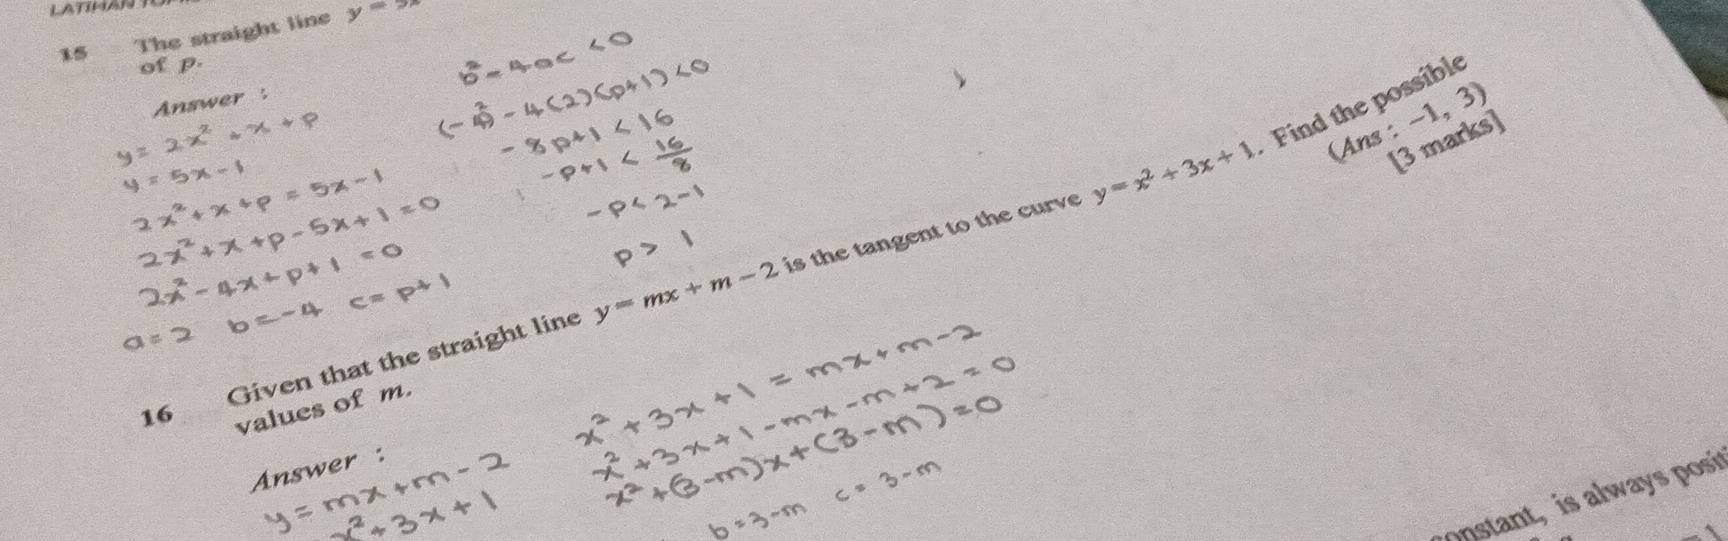 LATIHAN
15 The straight line y = 5x
of p.
Answer :
y = 2x² + x + p
y = 5x - 1
2x² + x + p = 5x - 1
2x² + x + p - 5x + 1 = 0
2x² - 4x + p + 1 = 0
a = 2 b = -4 c = p+1
b² - 4ac < 0
(-4)² - 4(2)(p+1) < 0
-8p+1 < 16
-p+1 < 16/8
-p < 2-1
p > 1
16 Given that the straight line y = mx + m - 2 is the tangent to the curve y = x² + 3x + 1. Find the possible
values of m.
(Ans : -1, 3)
[3 marks]
Answer :
y = mx + m - 2
x² + 3x + 1
x² + 3x + 1 = mx + m - 2
x² + 3x + 1 - mx - m + 2 = 0
x² + (3-m)x + (3-m) = 0
b = 3-m c = 3-m
constant, is always